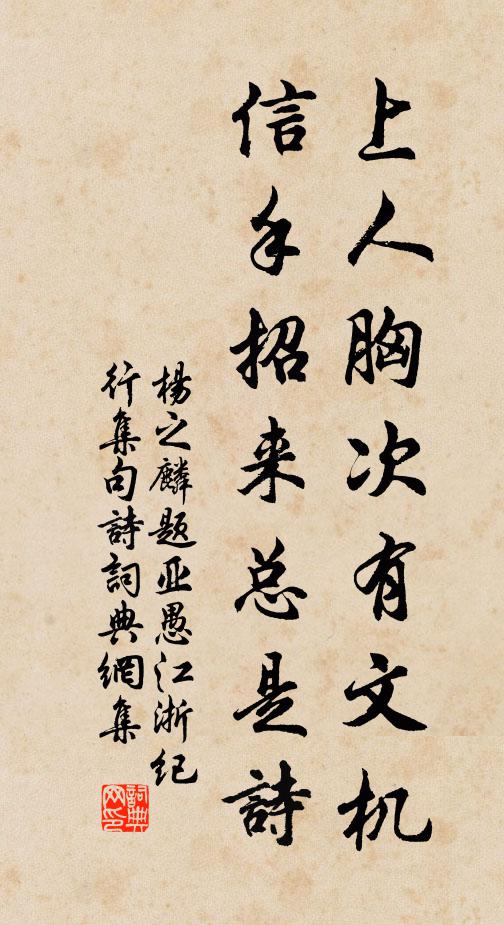 上人胸次有文机
信手招来总是詩
楊之麟題亚愚江浙纪
行集句詩詞典網集
詞典网印